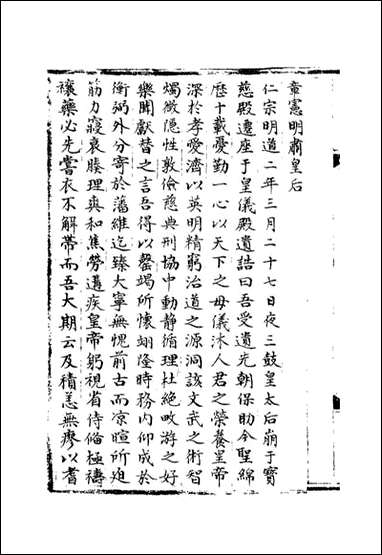 章憲明肅皇后
仁宗明道二年三月二十七日夜三鼓皇太后崩于寶
慈殿遷座于皇儀殿遺誥曰吾受遺先朝保助今聖綿
歷十載憂勤一心以天下之母儀沐人君之榮養皇帝
深於孝愛濟以英明精窮治道之源洞該文武之術智
燭微隱性敦儉慈典刑協中動静循理杜絶畋游之好
樂聞獻替之言吾得以罄竭所懷翊隆時務内仰成於
衡弼外分寄於藩維迄臻大寧無愧前古而凉暄所迫
筋力寖衰腠理爽和焦勞遘疾皇帝躬視省侍偹極禱
禳藥必先嘗衣不解帶而吾大期云及積恙無瘳以耆